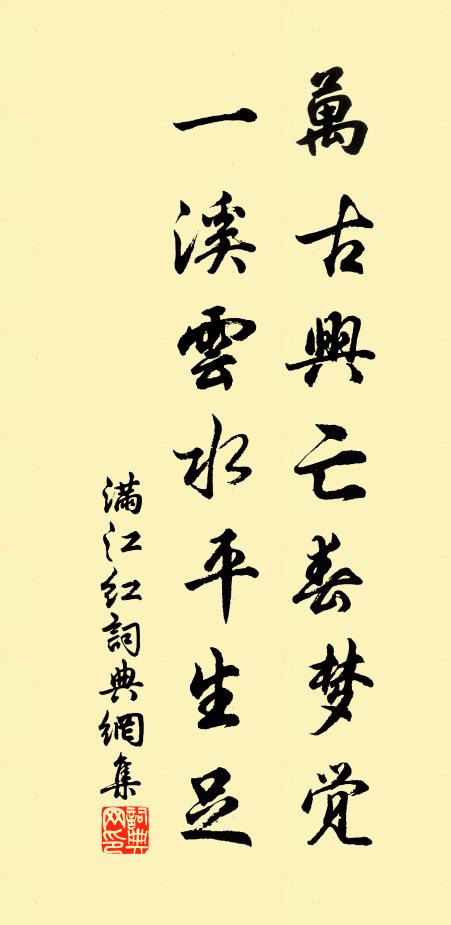 萬古興亡春梦觉
一溪雲水平生足
满江红詞典網集
詞典网印